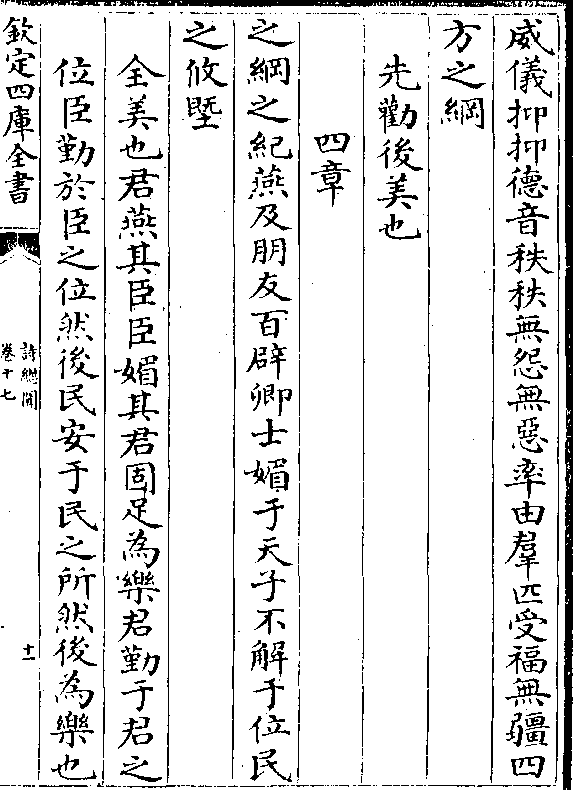 威儀抑抑德音秩秩無怨無惡率由羣匹受福無疆四
方之綱
先勸後美也
四章
之綱之紀燕及朋友百辟卿士媚于天子不解于位民
之攸墍
全美也君燕其臣臣媚其君固足為樂君勤于君之
位臣勤於臣之位然後民安于民之所然後為樂也
欽定四庫全書
詩纘聞
卷十七
十一